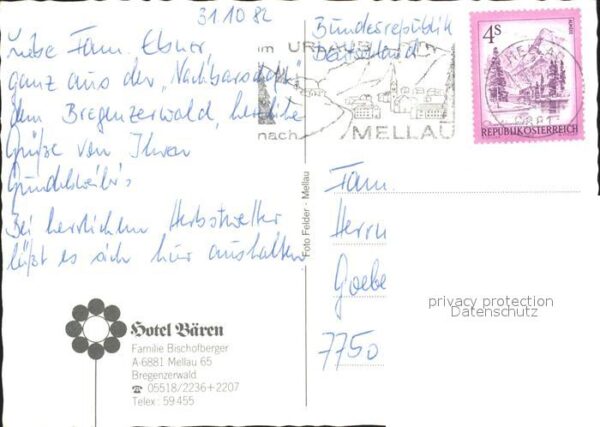 31.10 82
Liebe Fam. Ebner,
ganz aus der „Nachbarschaft"
dem Bregenzerwald, herzliche
Grüße von Ihren
Bei herrlichem Herbstwetter
läßt es sich hier aushalten
Hotel Bären
Familie Bischofberger
A-6881 Mellau 65
Bregenzerwald
☎ 05518/2236+2207
Telex: 59455
Foto Felder · Mellau
Bundesrepublik
Deutschland
im URLAUB
nach MELLAU
4S
REPUBLIK ÖSTERREICH
Fam.
Herrn
Goebe
7750
privacy protection
Datenschutz